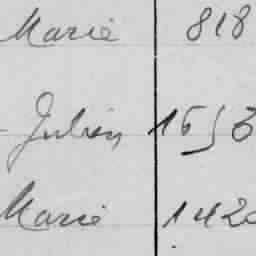 Marie 818
Julien 1653
Marie 1420